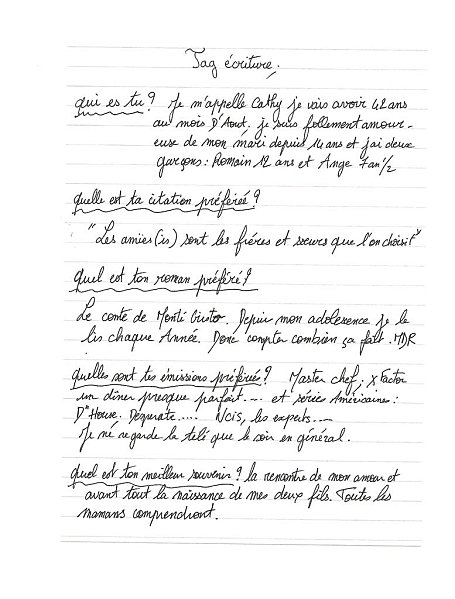 Tag écriture.
qui es tu ? Je m'appelle Cathy je vais avoir 42 ans
au mois D'Aout. je suis follement amour-
euse de mon mari depuis 14 ans et j'ai deux
garçons : Romain 12 ans et Ange 7 an 1/2
quelle est ta citation préférée ?
"Les amies(is) sont les fréres et soeurs que l'on choisit"
Quel est ton roman préféré ?
Le conte de Monté Cristo. Depuis mon adolescence je le
lis chaque Année. Donc compter combien ça fait. MDR
quelles sont tes émissions préférées ? Master chef, X Factor
un dîner presque parfait.... et séries Américaines :
Dr House. Desperate..... Ncis, les experts....
Je ne regarde la telé que le soir en général.
quel est ton meilleur souvenir ? la rencontre de mon amour et
avant tout la naissance de mes deux fils. Toutes les
mamans comprendront.